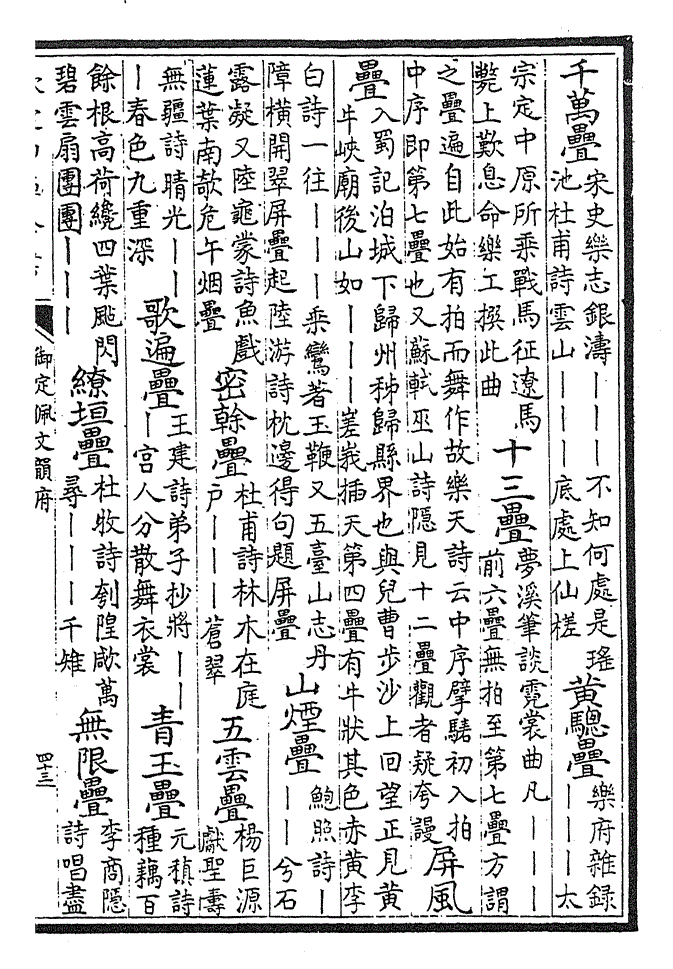 千萬疊
宋史樂志銀濤———不知何處是瑤
池杜甫詩雲山———底處上仙槎
黃驄疊
樂府雜録
———太
宗定中原所乘戰馬征遼馬
斃上歎息命樂工撰此曲
十三疊
夢溪筆談霓裳曲凡———
前六疊無拍至第七疊方謂
之疊遍自此始有拍而舞作故樂天詩云中序擘騞初入拍
中序即第七疊也又蘇軾巫山詩隱見十二疊觀者疑夸謾
屏風
疊
入蜀記泊城下歸州秭歸縣界也與兒曹步沙上回望正見黃
牛峽廟後山如———嵳峩插天第四疊有牛狀其色赤黃李
白詩一往———乘鸞著玉鞭又五臺山志丹
障橫開翠屏疊起陸游詩枕邊得句題屏疊
山煙疊
鮑照詩—
——兮石
露凝又陸龜蒙詩魚戲
蓮葉南欹危午烟疊
密幹疊
杜甫詩林木在庭
户———蒼翠
五雲疊
楊巨源
獻聖壽
無疆詩晴光——
—春色九重深
歌遍疊
王建詩弟子抄將——
—宮人分散舞衣裳
青玉疊
元稹詩
種藕百
餘根高荷纔四葉颭閃
碧雲扇團團———
繚垣疊
杜牧詩刳隍歃萬
尋———千雉
無限疊
李商隱
詩唱盡
御定佩文韻府
四十三